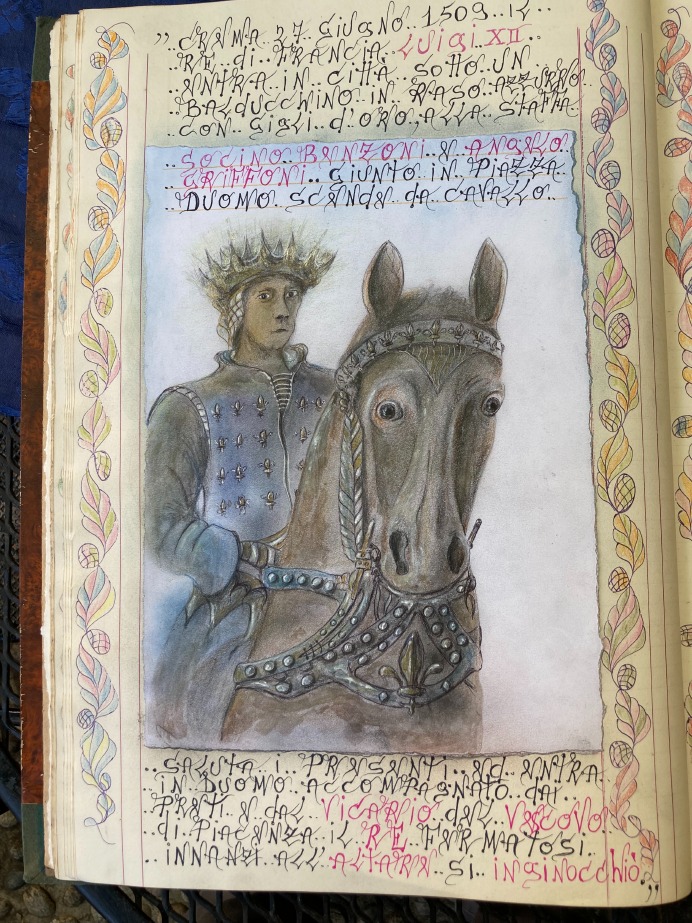 " ..CREMA.. 27.. GIUGNO.. 1509.. IL..
..RE.. di.. FRANCIA.. LUIGI XII..
..ENTRA.. IN.. CITTÀ.. SOTTO.. UN..
..BALDUCCHINO.. IN.. RASO.. AZZURRO..
..CON.. GIGLI.. D'ORO,.. ALLA.. STAFFA..
..SOCINO.. BENZONI.. E.. ANGELO..
..GRIFFONI.. GIUNTO.. IN.. PIAZZA..
..DUOMO.. SCENDE.. DA.. CAVALLO..
..SALUTA.. i.. PRESENTI.. ED.. ENTRA..
..IN.. DUOMO.. ACCOMPAGNATO.. DAI..
..PRETI.. E.. DAL.. VICARIO.. DEL.. VESCOVO..
..di.. PIACENZA.. IL.. RE.. FERMATOSI..
..INNANZI.. ALL'ALTARE.. SI.. INGINOCCHIÒ.. "